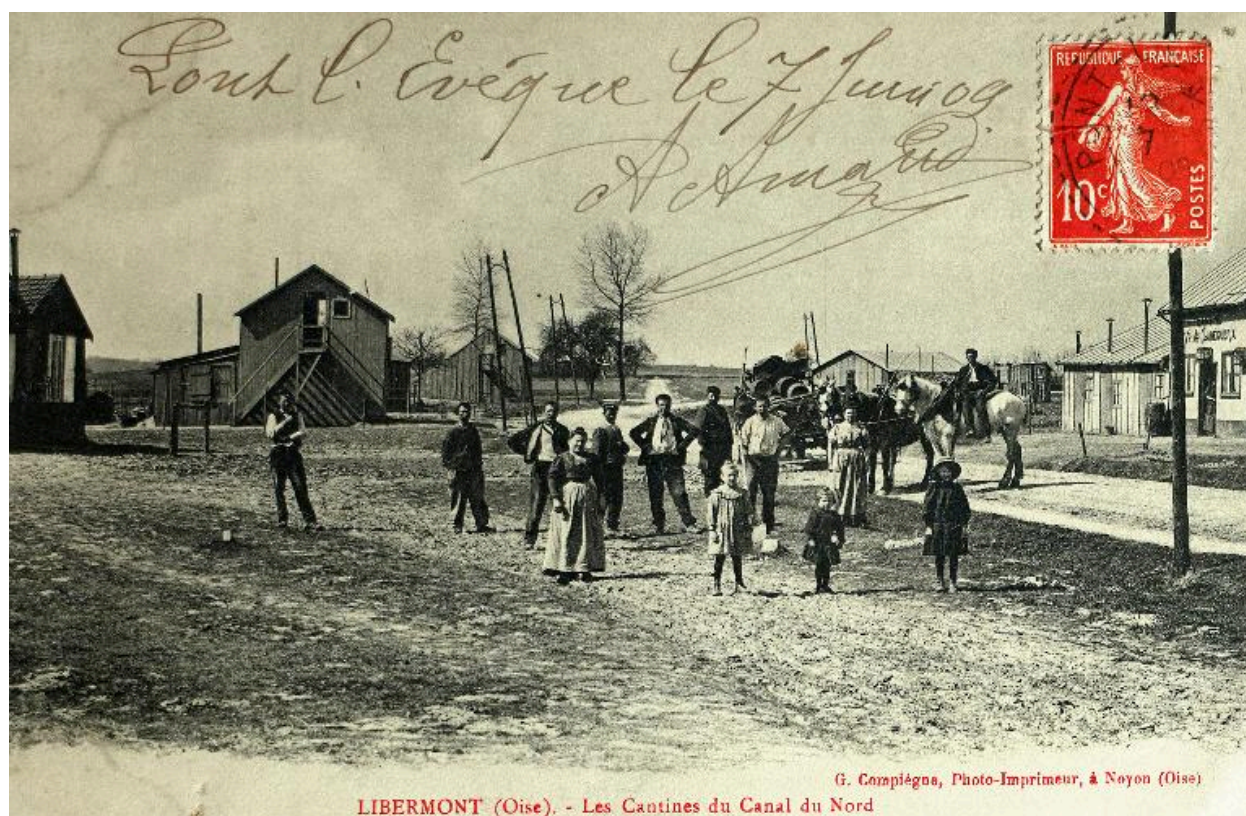 Pont l. Evêque le 7 Juin 09
A Amand
REPUBLIQUE FRANÇAISE
10c
POSTES
G. Compiégne, Photo-Imprimeur, à Noyon (Oise)
LIBERMONT (Oise). - Les Cantines du Canal du Nord